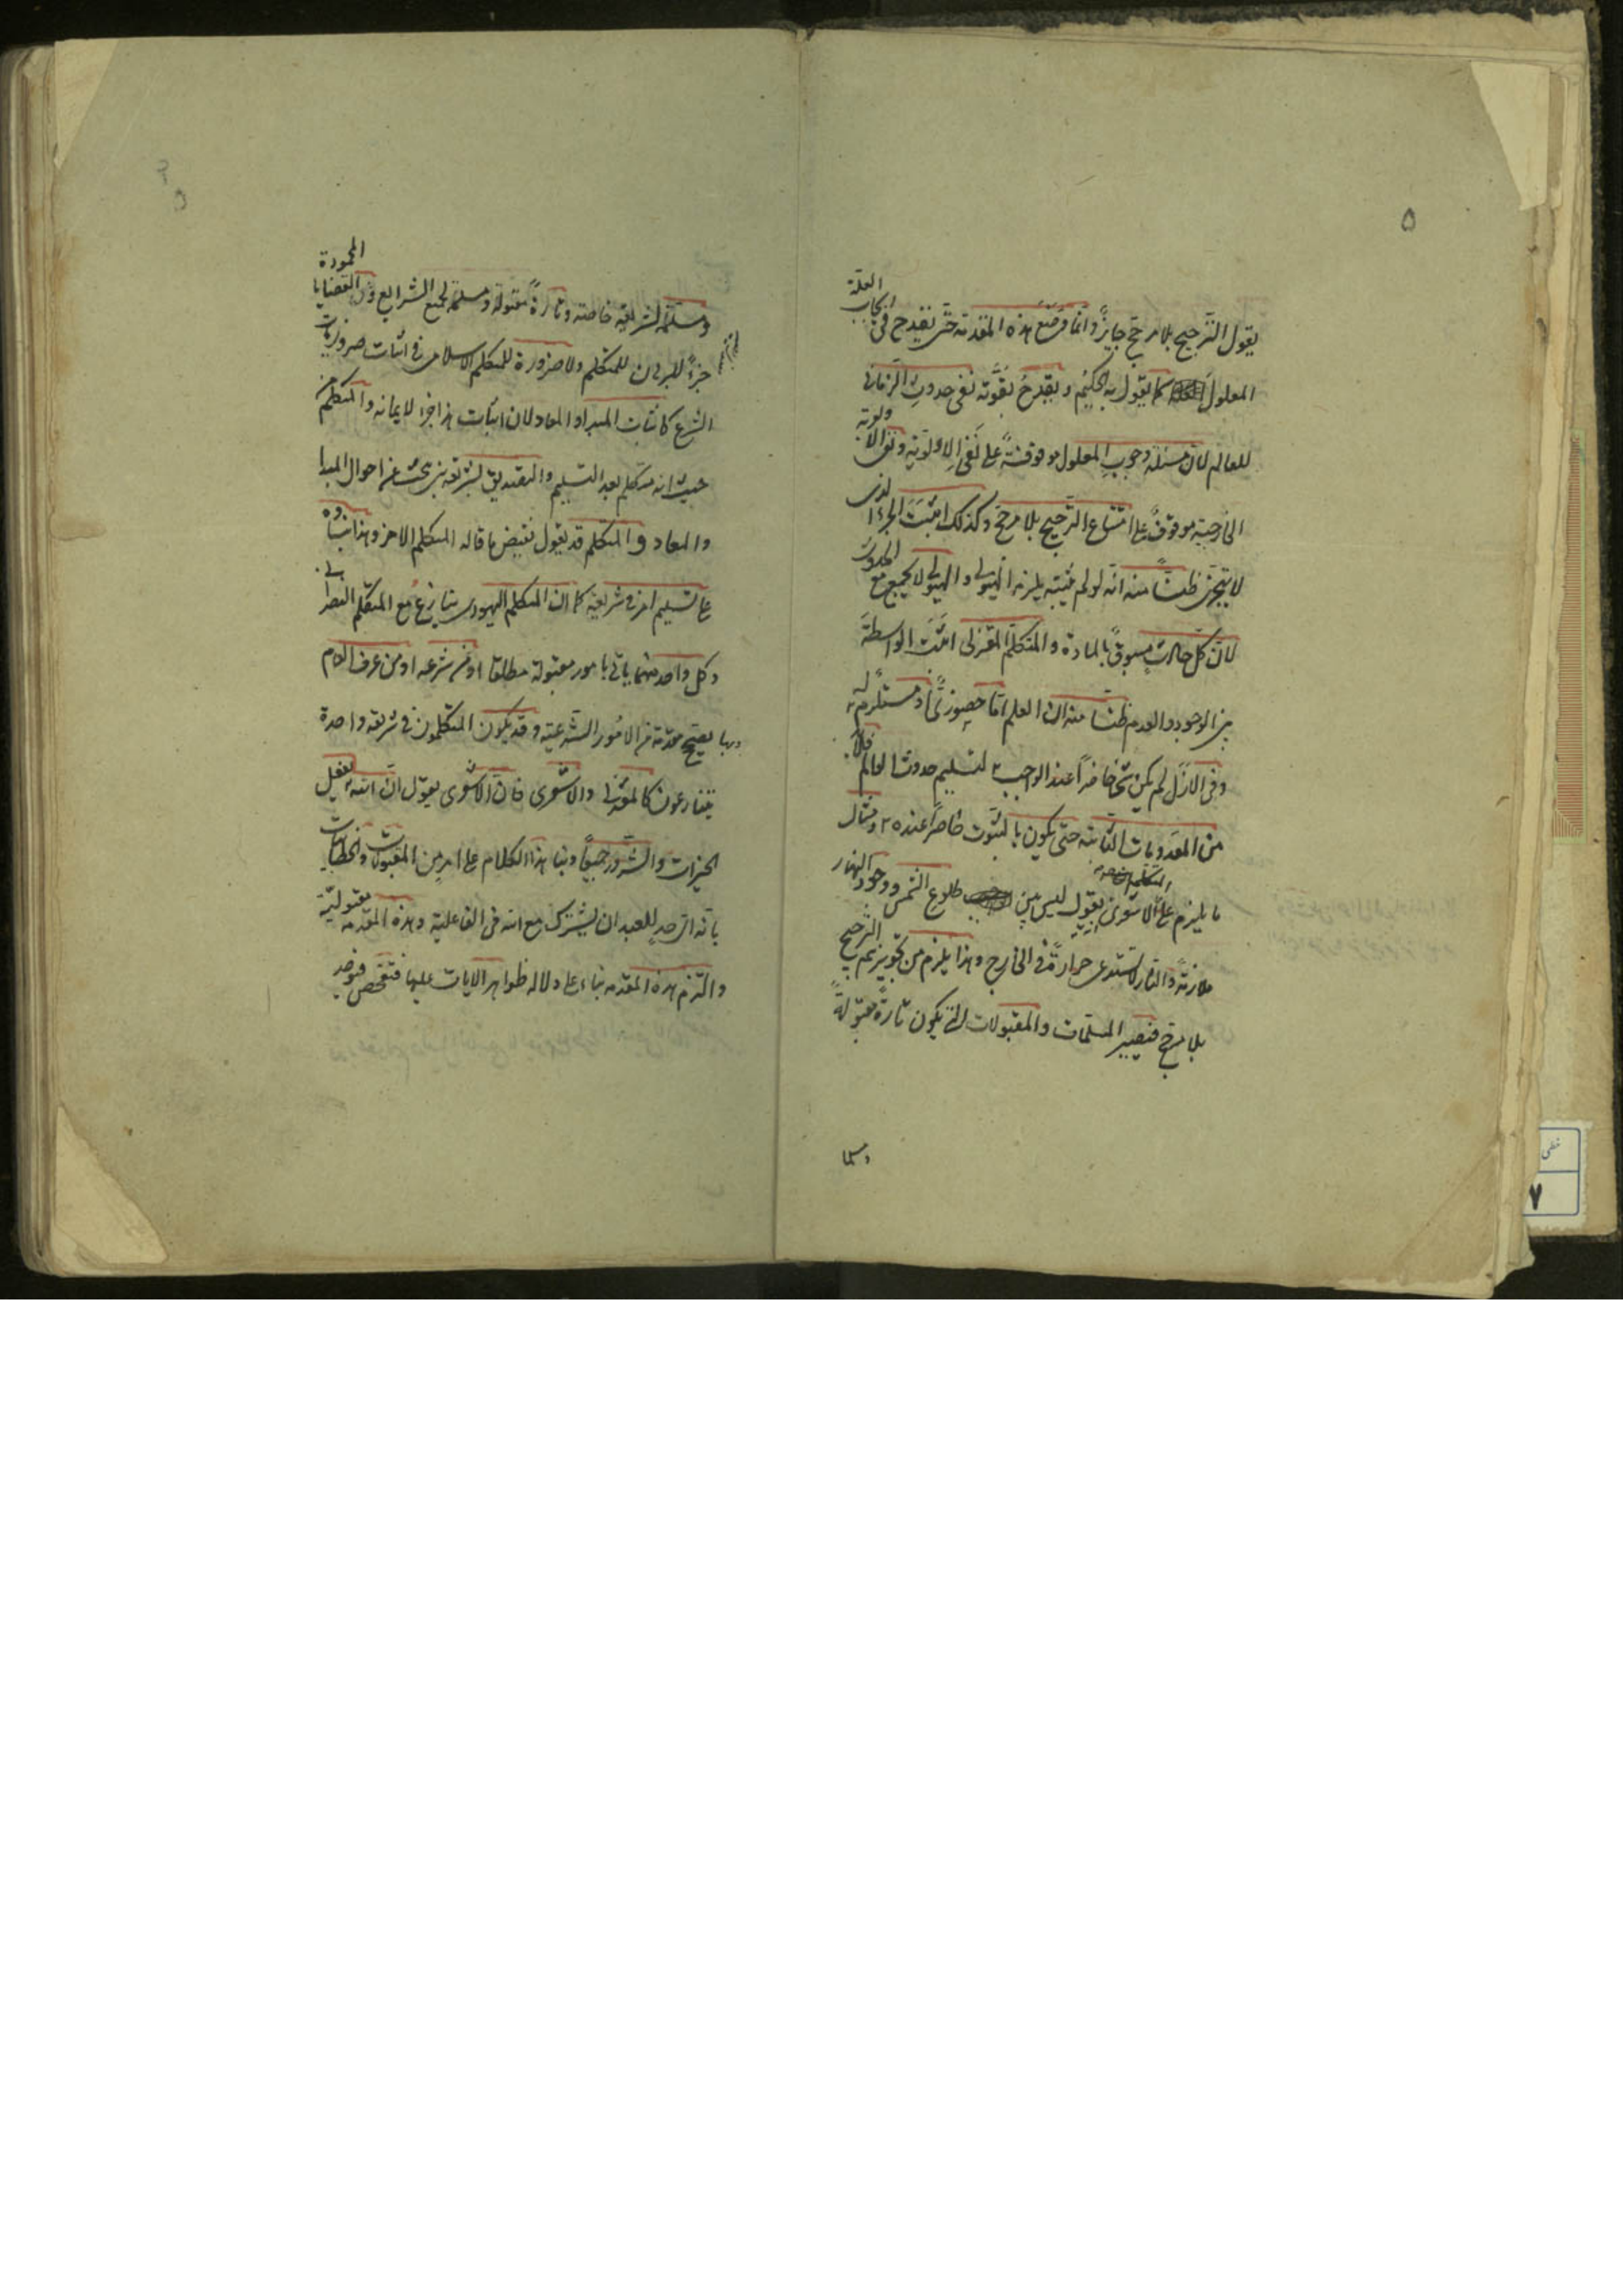 ۵
يقول الترجيح بلا مرجح جايز وانما وضع هذه المقدمة حتى يقدح فى ايجاب العلة
المعلول كما يقول به الحكيم و يقدح بقوته نفى حدوث الزمانى
للعالم لان مسئلة وجوب المعلول موقوفة على نفى الاولوية ونفى الاولوية
الخارجية موقوف على امتناع الترجيح بلا مرجح وكذلك اثبت الجزء الذى
لا يتجزى ظنا منه انه لو لم يثبته يلزمه الهيولى والهيولى لا يجتمع مع الحدوث
لان كل حادث مسبوق بالمادة والمتكلم المعتزلى اثبت الواسطة
بين الوجود والعدم ظنا منه ان العلم اما حضورى او مستلزم له
وفى الازل لم يكن شئ حاضرا عند الواجب لتسليم حدوث العالم فلا بد
من المعدومات الثابتة حتى يكون بالثبوت حاضرا عنده ومثال
ما يلزم على الاشعرى يقول ليس بين طلوع الشمس ووجود النهار
ملازمة والنار لا تستدعى حرارة فى الخارج وهذا يلزم من تجويزهم الترجيح
بلا مرجح فيصير المسلمات والمقبولات التى يكون تارة مقبولة
ومسلمة
ومسلمة لشريعة خاصة وتارة مقبولة ومسلمة لجميع الشرايع والقضايا المحمودة
جزءا للبرهان للمتكلم ولا ضرورة للمتكلم الاسلامى فى اثبات ضروريات
الشرع كاثبات المبدا والمعاد لان اثبات هذا جزء لايمانه والمتكلم من
حيث انه متكلم بعد التسليم والتصديق لشريعة يبحث عن احوال المبدا
والمعاد و المتكلم قد يقول نقيض ما قاله المتكلم الاخر وهذا بناؤه
على تسليم امر فى شريعة كما ان المتكلم اليهودى يتنازع مع المتكلم النصرانى
وكل واحد منهما ياتى بامور مقبولة مطلقا او من شرعه او من عرف العام
وبها يصحح مقدمة من الامور الشرعية وقد يكون المتكلمون فى شريعة واحدة
يتنازعون كالمعتزلى والاشعرى فان الاشعرى يقول ان الله يفعل
الخيرات والشرور جميعا وبناء هذا الكلام على امرين المقبولات والخطابيات
بانه لا يصح للعبد ان يشترك مع الله فى الفاعلية وهذه المقدمة مقبولية
والتزم هذه المقدمة بناء على دلالة ظواهر الايات عليها فتفحص فوجد